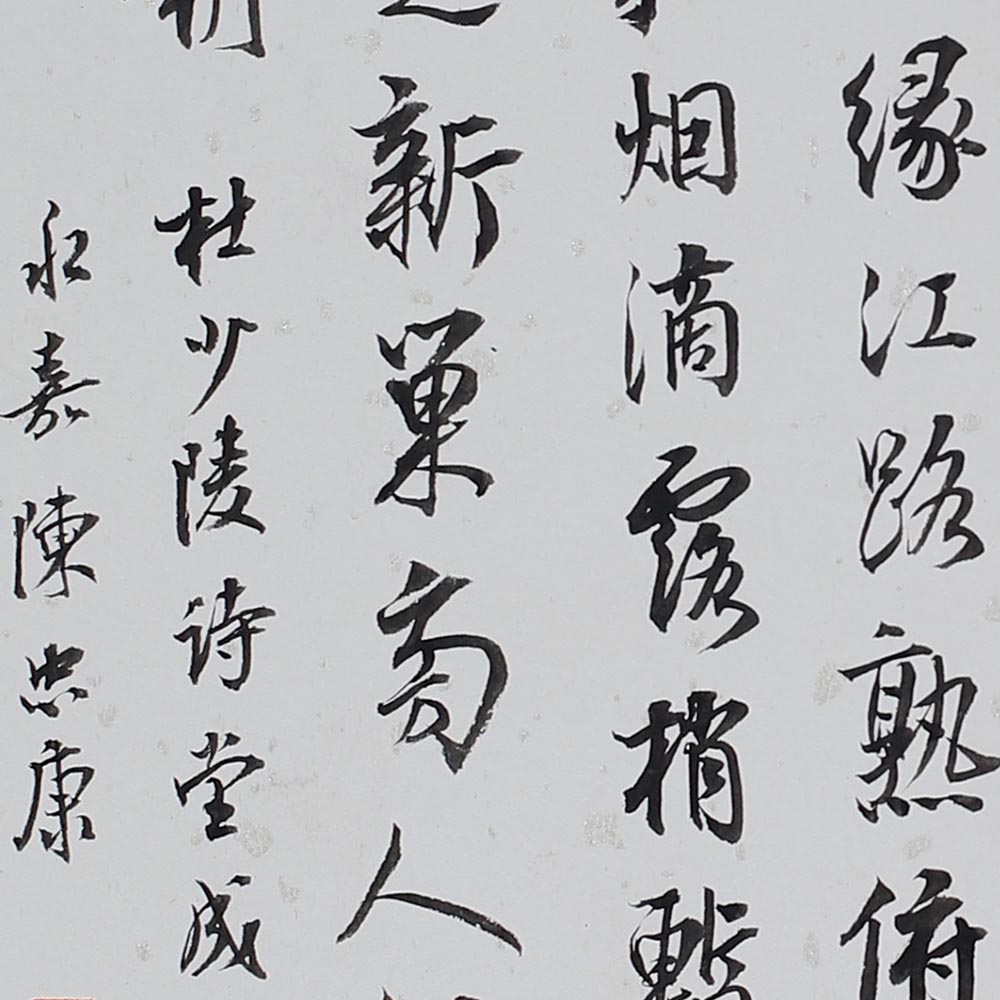 緣江路熟俯
烟滴露梢暫
新巢旁人
杜少陵詩堂成
永嘉陳忠康